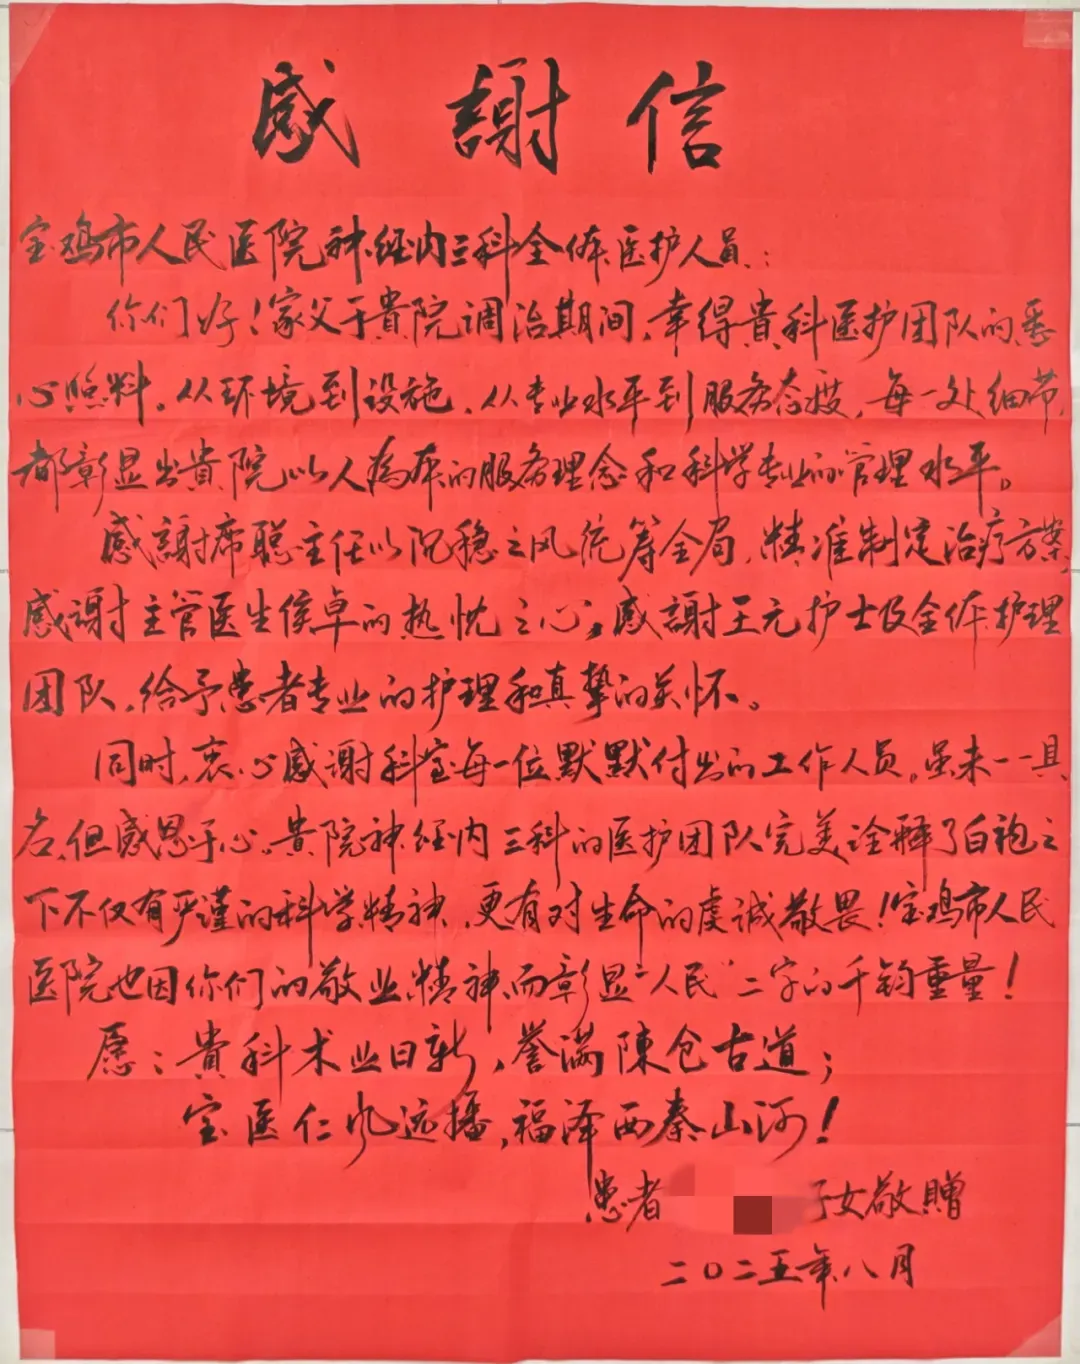 感謝信
宝鸡市人民医院神经内三科全体医护人员：
你们好！家父于貴院调治期间，幸得貴科医护团队的悉
心照料。从环境到设施，从专业水平到服务态度，每一处细节，
都彰显出貴院以人為本的服务理念和科学专业的管理水平。
感謝席聪主任以沉稳之风统筹全局，精准制定治疗方案，
感謝主管医生侯卓的热忱之心。感謝王元护士及全体护理
团队，给予患者专业的护理和真摯的关怀。
同时，衷心感谢科室每一位默默付出的工作人员。虽未一一具
名，但感恩于心。貴院神经内三科的医护团队完美诠释了白袍之
下不仅有严谨的科学精神，更有对生命的虔诚敬畏！宝鸡市人民
医院也因你们的敬业精神而彰显“人民”二字的千钧重量！
愿：貴科术业日新，誉满陳仓古道；
宝医仁风远播，福泽西秦山河！
患者 子女敬贈
二〇二五年八月